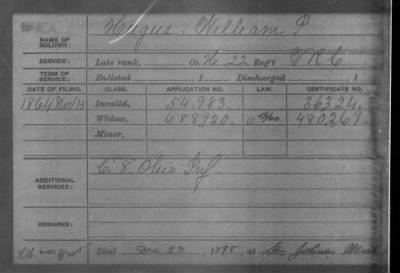 NAME OF SOLDIER: Hugus, William P.
SERVICE: Late rank, Co. H. 22 Reg't V R C
TERM OF SERVICE: Enlisted , 1 Discharged , 1
DATE OF FILING. CLASS. APPLICATION NO. LAW. CERTIFICATE NO.
1864 Nov 15 Invalid, 54,983. 36324.
Widow, 688920. 480,267.
Minor,
ADDITIONAL SERVICES: C. 8. Ohio Inf.
REMARKS:
Died Dec 23, 1895, at St. Johns